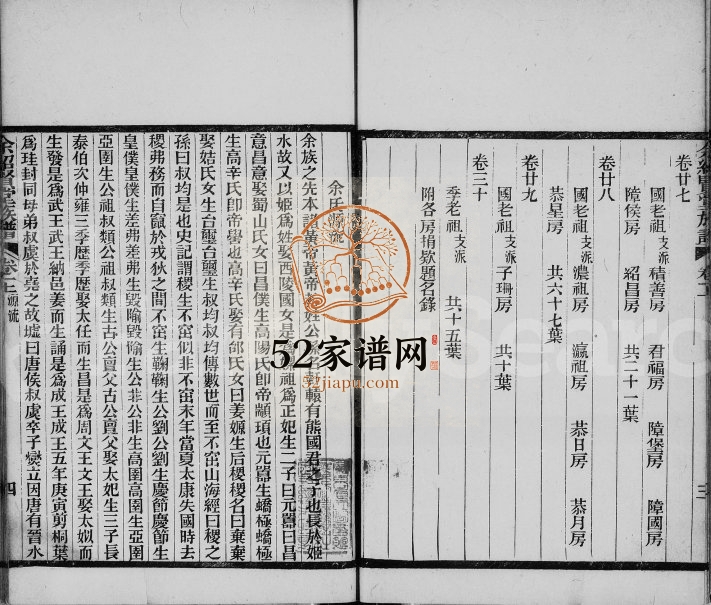 卷廿七
國老祖支派 積善房 君福房 障堡房 障國房
障侯房 紹昌房 共二十一葉
卷廿八
國老祖支派 濃祖房 瀛祖房 恭日房 恭月房
恭星房 共六十七葉
卷廿九
國老祖支派 子珊房 共十葉
卷三十
季老祖支派 共十五葉
附各房捐欵題名錄
三
余氏源流
余族之先本諸黃帝黃帝姓公孫 軒轅有熊國君之子也長於姬
水故又以姬爲姓娶西陵國女是爲嫘祖爲正妃生二子曰元囂曰昌
意昌意娶蜀山氏女曰昌僕生高陽氏卽帝顓頊也元囂生蟜極蟜極
生高辛氏卽帝嚳也高辛氏娶有邰氏女曰姜嫄生后稷稷名曰棄棄
娶姞氏女生台璽台璽生叔均叔均傳數世而至不窋山海經曰稷之
孫曰叔均是也史記謂稷生不窋似非不窋末年當夏太康失國時去
稷弗務而自竄於戎狄之間不窋生鞠鞠生公劉公劉生慶節慶節生
皇僕皇僕生差弗差弗生毀隃毀隃生公非公非生高圉高圉生亞圉
亞圉生公祖叔類公祖叔類生古公亶父古公亶父娶太妃生三子長
泰伯次仲雍三季歷季歷娶太任而生昌是爲周文王文王娶太姒而
生發是爲武王武王納邑姜而生誦是爲成王成王五年庚寅剪桐葉
爲珪封同母弟叔虞於堯之故墟曰唐侯叔虞卒子燮立因唐有晉水
卷之二 源流
四
52家谱网
52jiapu.com